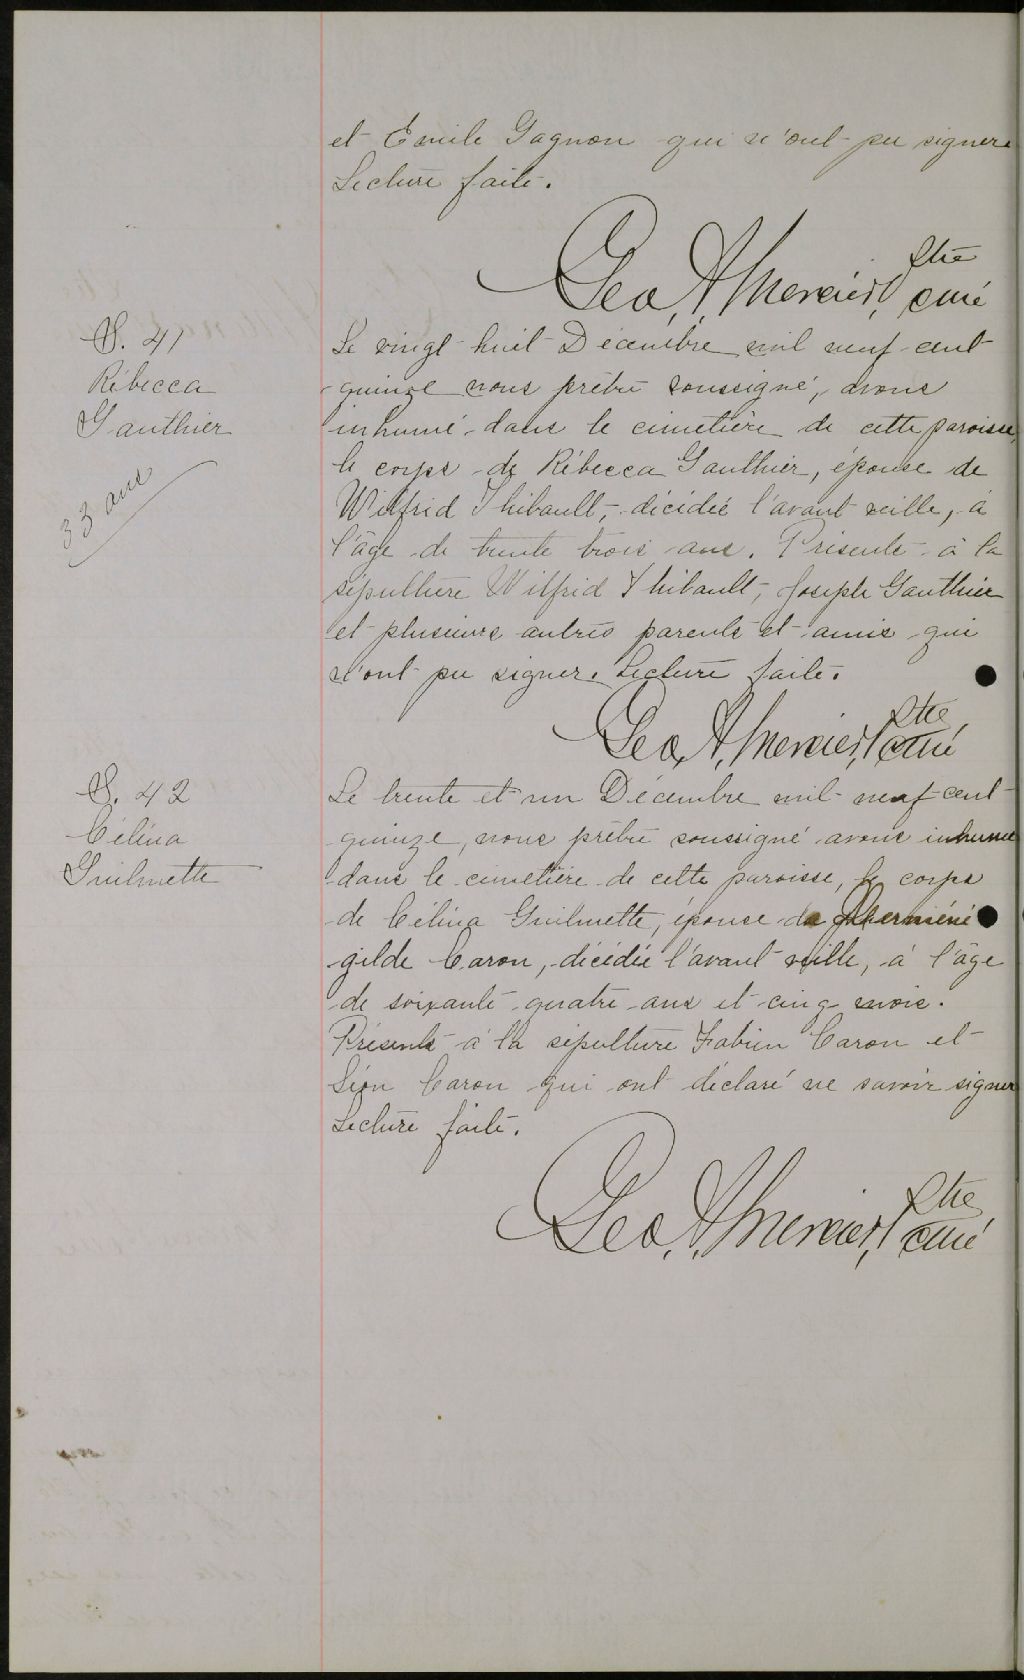 et Emile Gagnon qui n'ont pu signer.
Lecture faite.
Geo. A. Mercier, Ptre
curé
S. 41
Rébecca
Gauthier
33 ans
Le vingt huit Décembre mil neuf cent
quinze nous prêtre soussigné, avons
inhumé dans le cimetière de cette paroisse,
le corps de Rébecca Gauthier, épouse de
Wilfrid Thibault, décédée l'avant veille, à
l'âge de trente trois ans. Présents à la
sépulture Wilfrid Thibault, Joseph Gauthier
et plusieurs autres parents et amis qui
n'ont pu signer. Lecture faite.
Geo. A. Mercier, Ptre
curé
S. 42
Célina
Guilmette
Le trente et un Décembre mil neuf cent
quinze, nous prêtre soussigné avons inhumé
dans le cimetière de cette paroisse, le corps
de Célina Guilmette, épouse de
gilde Caron, décédée l'avant veille, à l'âge
de soixante quatre ans et cinq mois.
Présents à la sépulture Fabien Caron et
Léon Caron qui ont déclaré ne savoir signer
Lecture faite.
Geo. A. Mercier, Ptre
curé